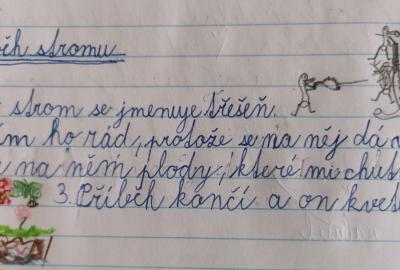 ěh stromu
strom se jmenuje třešeň.
ím ho rád, protože se na něj dá
na něm plody, které mi chut
3. Příběh končí a on kvet